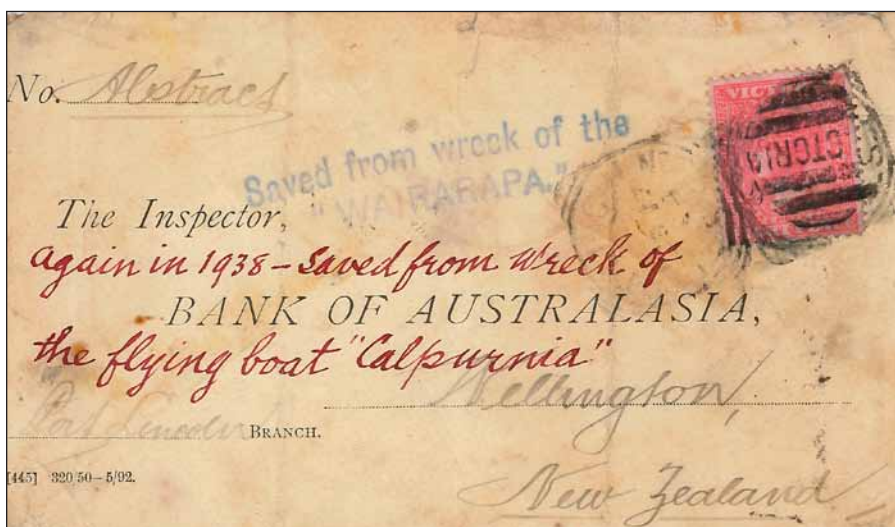 No. Abstract
VICTORIA
Saved from wreck of the
"WAIRARAPA."
The Inspector,
again in 1938 – saved from wreck of
BANK OF AUSTRALASIA,
the flying boat "Calpurnia"
Wellington,
Port Lincoln BRANCH.
[445] 320/50—5/92.
New Zealand